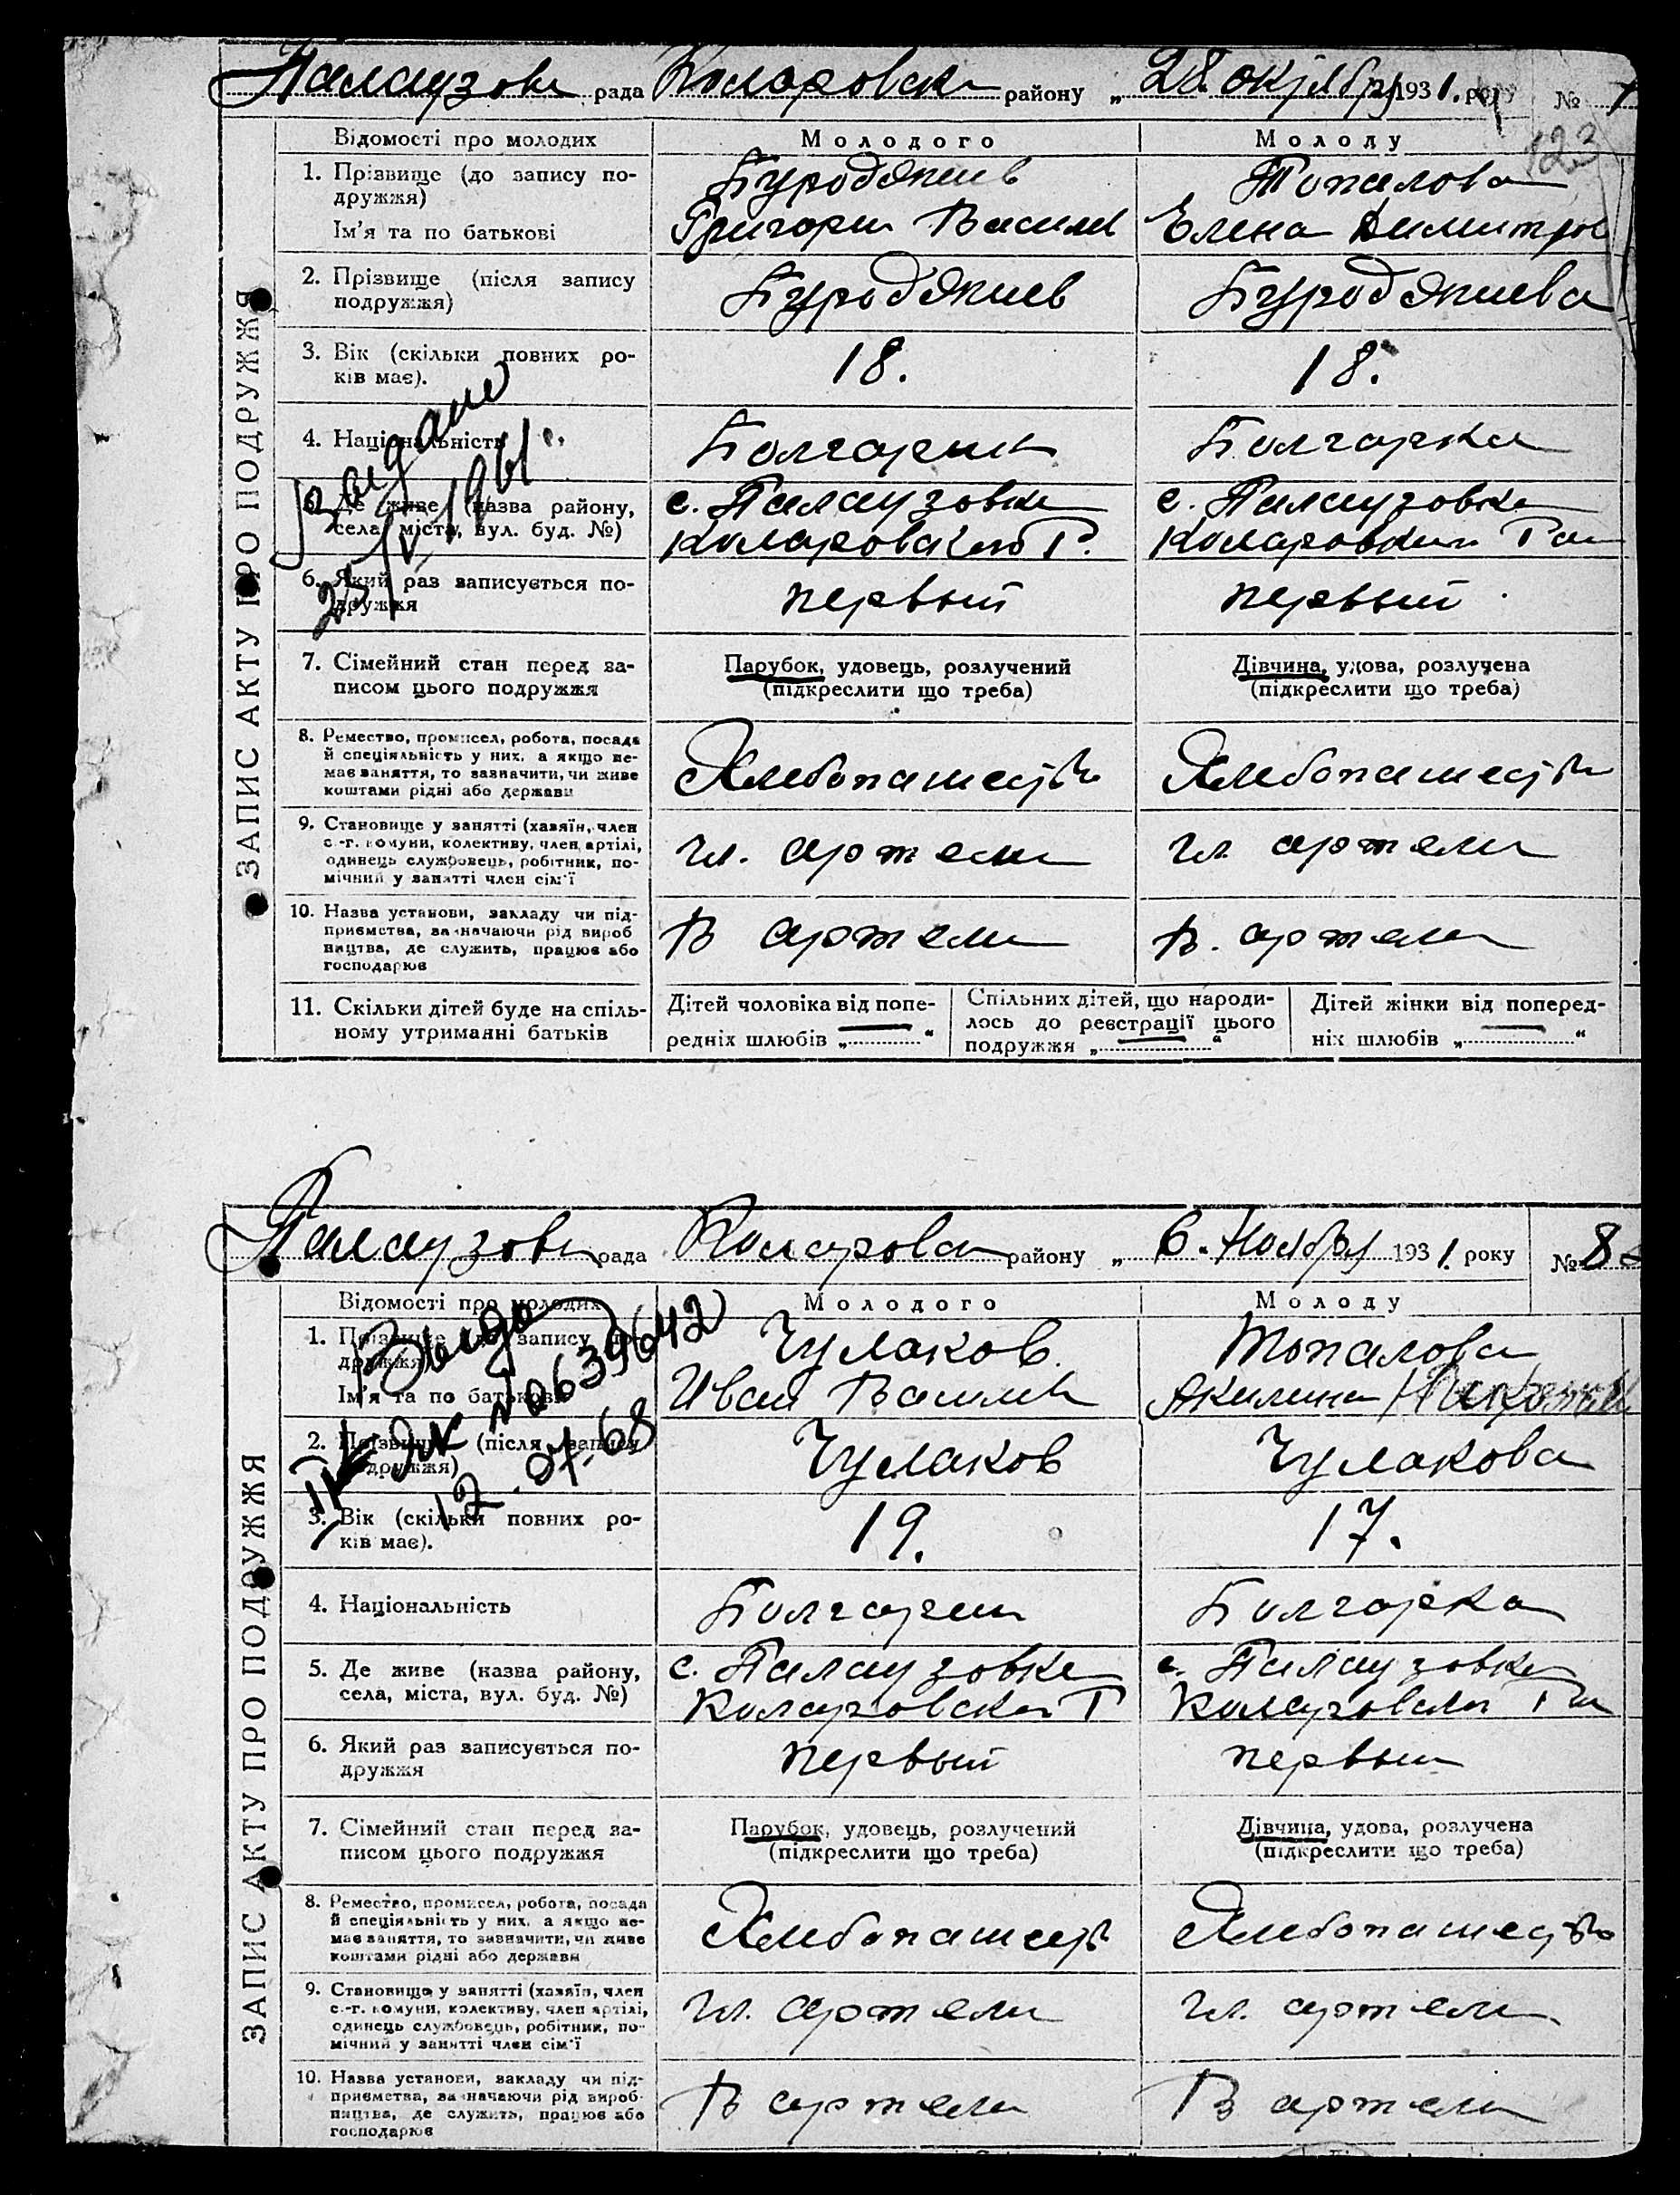 Палаузовк рада Коларовск району „ 28. октября 1931. року №
123
ЗАПИС АКТУ ПРО ПОДРУЖЖЯ
Відомості про молодих Молодого Молоду
1. Прізвище (до запису по-
дружжя)
Ім'я та по батькові
Буроджиев Топалова
Григори Василев Елена Димитров
2. Прізвище (після запису
подружжя)
Буроджиев Буроджиева
3. Вік (скільки повних ро-
ків має).
18. 18.
4. Національність
Болгарин Болгарка
Де живе (назва району,
села, міста, вул. буд. №)
с. Палаузовка с. Палаузовка
Коларовского Р. Коларовски Ра
6. Який раз записується по-
дружжя
первый первый
7. Сімейний стан перед за-
писом цього подружжя
Парубок, удовець, розлучений Дівчина, удова, розлучена
(підкреслити що треба) (підкреслити що треба)
8. Ремество, промисел, робота, посада
й спеціяльність у них, а якщо не-
має заняття, то зазначити, чи живе
коштами рідні або держави
Хлебопашеств Хлебопашеств
9. Становище у занятті (хазяїн, член
с.-г. комуни, колективу, член артілі,
одинець службовець, робітник, по-
мічний у занятті член сім'ї
чл. артели чл артели
10. Назва установи, закладу чи під-
приємства, зазначаючи рід вироб
ництва, де служить, працює або
господарює
В артели в. артели
11. Скільки дітей буде на спіль-
ному утриманні батьків
Дітей чоловіка від попе-
редніх шлюбів „ — “
Спільних дітей, що народи-
лось до реєстрації цього
подружжя „ — “
Дітей жінки від поперед-
ніх шлюбів „ — “
Выдано
25/V-1961.
Палаузовк рада Коларовск району „ 6. Ноября 1931. року № 8
ЗАПИС АКТУ ПРО ПОДРУЖЖЯ
Відомості про молодих Молодого Молоду
1. Прізвище (до запису по-
дружжя)
Ім'я та по батькові
Чулаков. Топалова
Иван Василев Акилина
2. Прізвище (після запису
подружжя)
Чулаков Чулакова
3. Вік (скільки повних ро-
ків має).
19. 17.
4. Національність
Болгарин Болгарка
5. Де живе (назва району,
села, міста, вул. буд. №)
с. Палаузовка с. Палаузовка
Коларовски Р Коларовски Ра
6. Який раз записується по-
дружжя
первый первый
7. Сімейний стан перед за-
писом цього подружжя
Парубок, удовець, розлучений Дівчина, удова, розлучена
(підкреслити що треба) (підкреслити що треба)
8. Ремество, промисел, робота, посада
й спеціяльність у них, а якщо не-
має заняття, то зазначити, чи живе
коштами рідні або держави
Хлебопашеств Хлебопашество
9. Становище у занятті (хазяїн, член
с.-г. комуни, колективу, член артілі,
одинець службовець, робітник, по-
мічний у занятті член сім'ї
чл. артели чл. артели
10. Назва установи, закладу чи під-
приємства, зазначаючи рід вироб-
ництва, де служить, працює або
господарює
В артели В артели
Выдано
№0639642
12.07-68